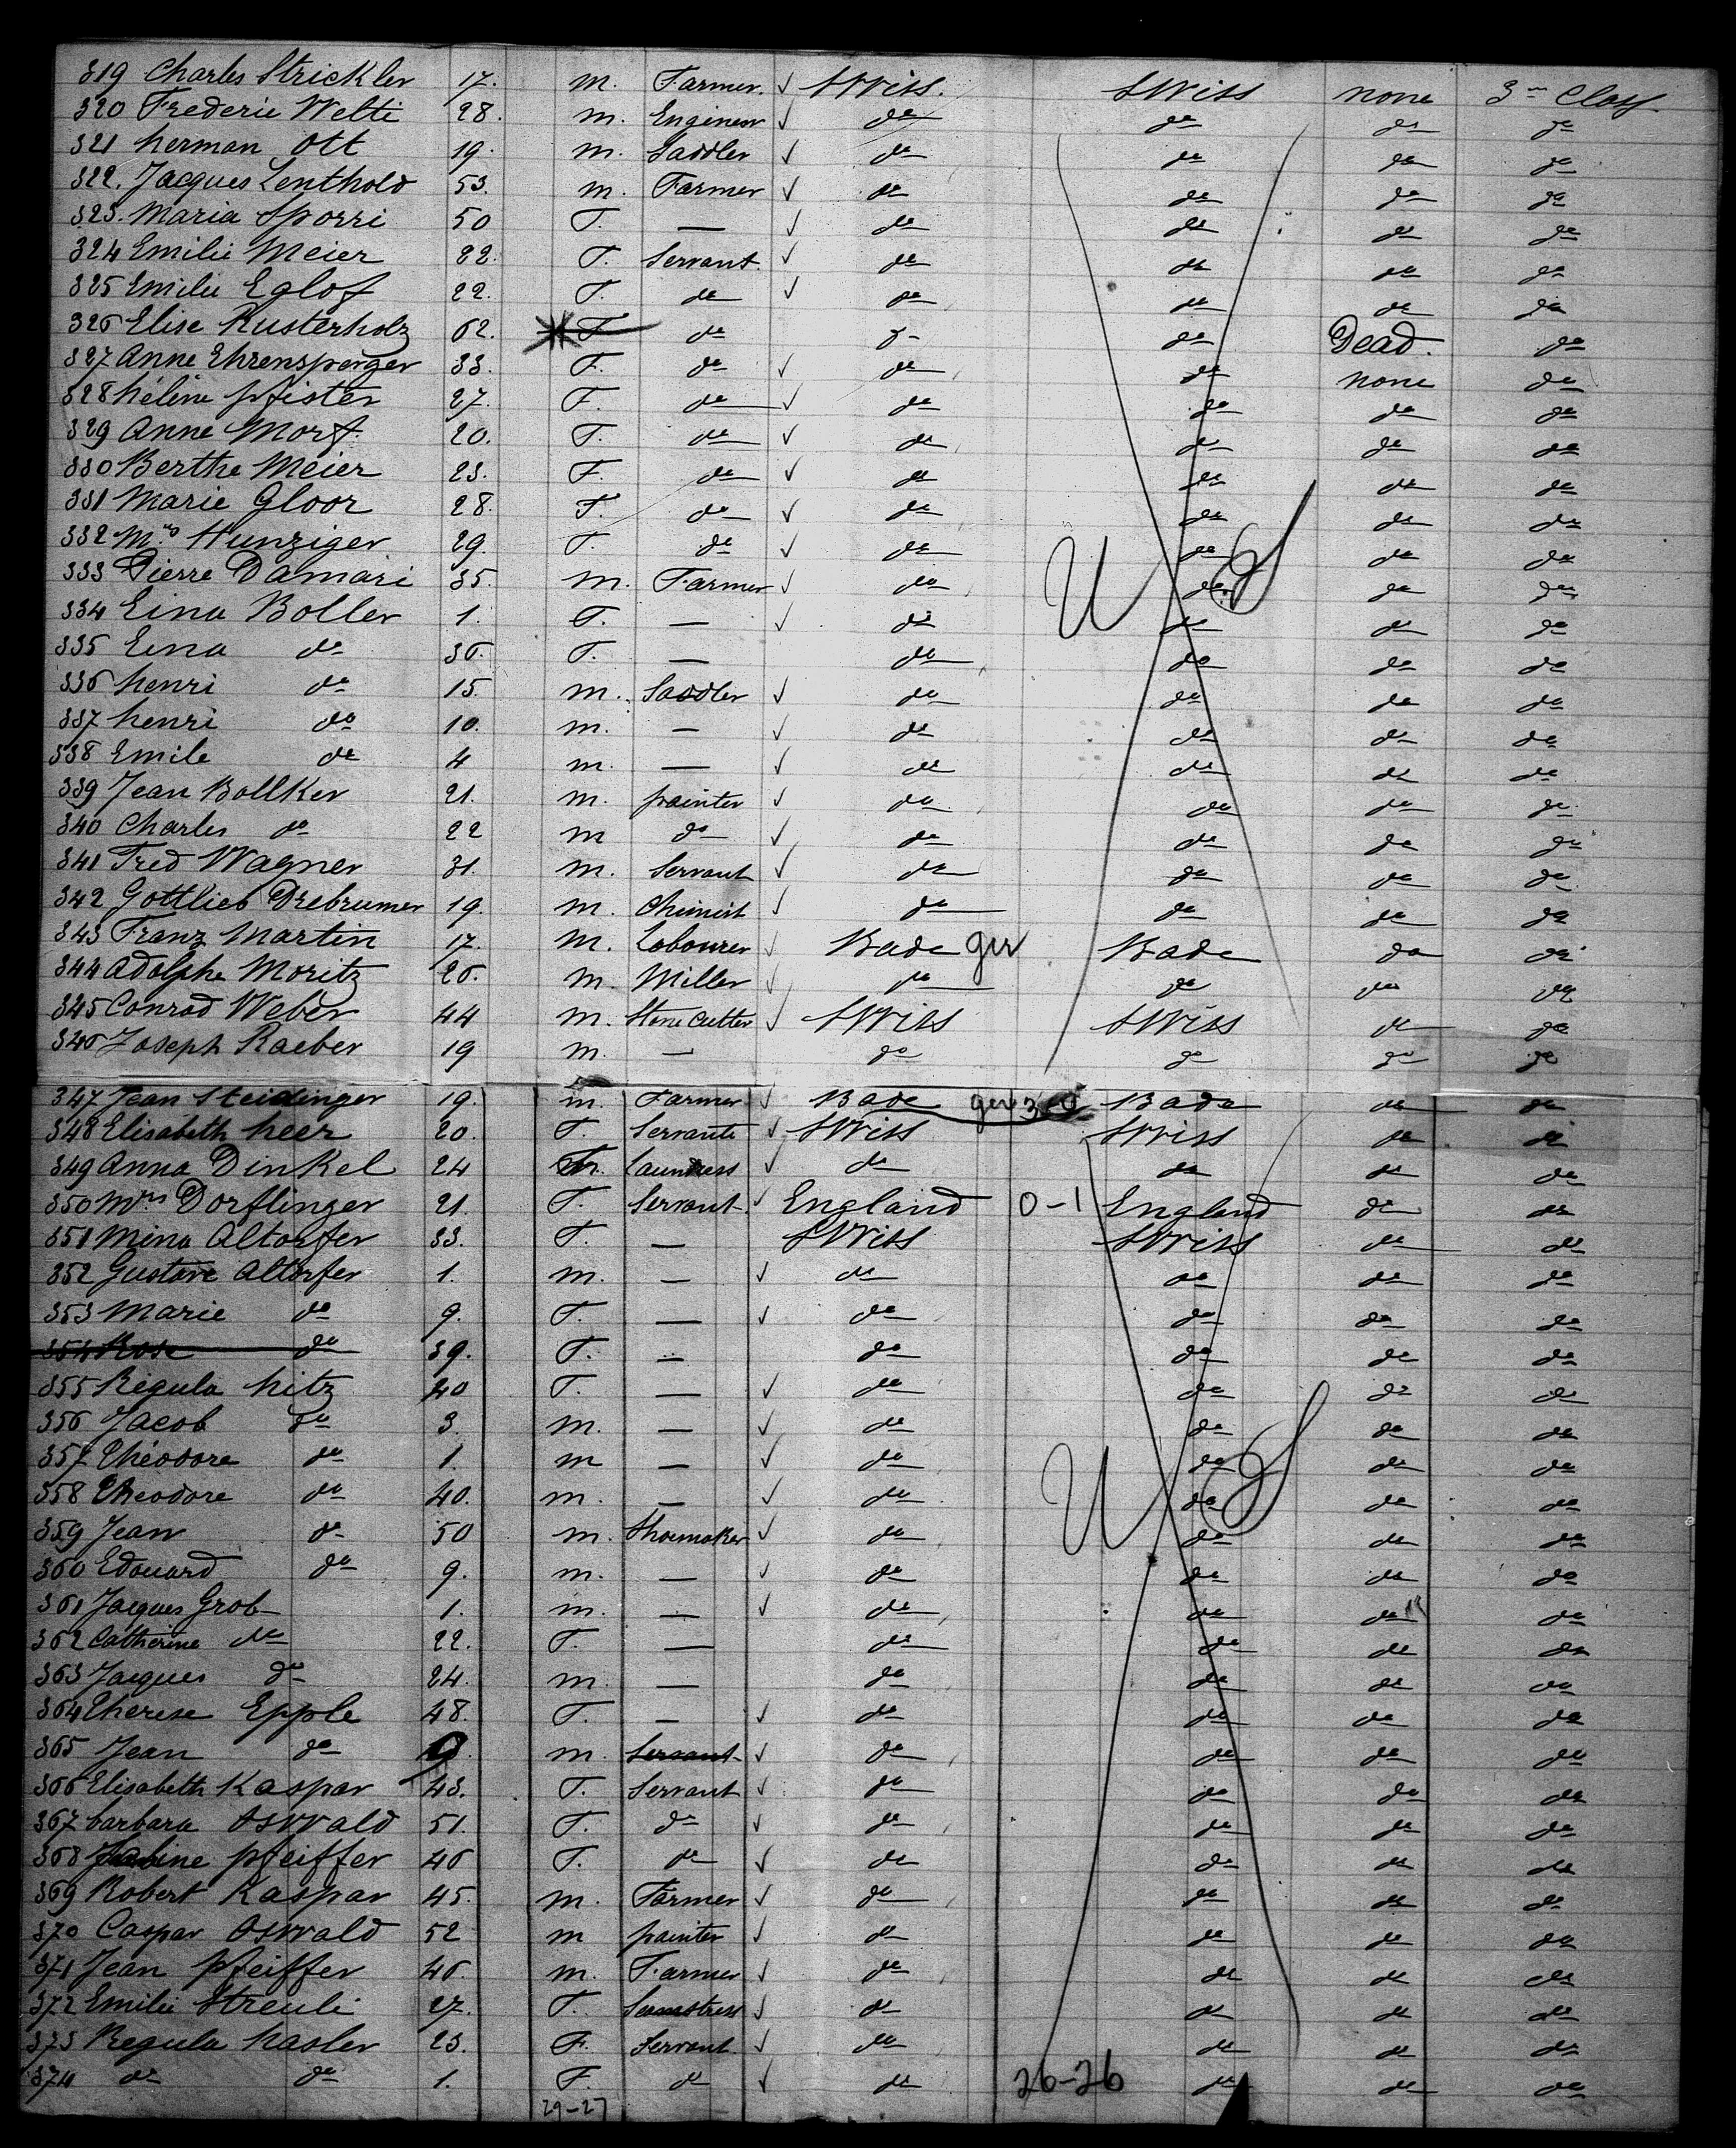 319 Charles Strickler 17. m. Farmer. ✓ Swiss. Swiss none 3rd Class
320 Frederic Welti 28. m. Engineer ✓ do do do do
321 herman Ott 19. m. Saddler ✓ do do do do
322. Jacques Lenthold 53. m. Farmer ✓ do do do do
323. Maria Sporri 50 F. — ✓ do do do do
324 Emilie Meier 22. F. Servant. ✓ do do do do
325 Emilie Eglof 22. F. do ✓ do do do do
326 Elise Kusterholz 62. F do do do Dead. do
327 Anne Ehrensperger 33. F. do ✓ do do none do
328 hélène pfister 27. F. do ✓ do do do do
329 Anne Morf. 20. F. do ✓ do do do do
330 Berthe Meier 23. F. do ✓ do do do do
331 Marie Gloor 28. F. do ✓ do do do do
332 Mrs Hunziger 29. F. do ✓ do do do do
333 Pierre Damari 35. m. Farmer ✓ do do do do
U S
334 Lina Boller 1. F. — ✓ do do do do
335 Lina do 36. F. — do do do do
336 henri do 15. m. Saddler ✓ do do do do
337 henri do 10. m. — ✓ do do do do
338 Emile do 4 m. — ✓ do do do do
339 Jean Bollker 21. m. painter ✓ do do do do
340 Charles do 22 m do ✓ do do do do
341 Fred Wagner 31. m. Servant ✓ do do do do
342 Gottlieb Drebrumer 19. m. Chimist ✓ do do do do
343 Franz Martin 17. m. Labourer ✓ Bade ger Bade do do
344 Adolphe Moritz 26. m. Miller ✓ do do do do
345 Conrad Weber 44 m. Stone Cutter ✓ Swiss Swiss do do
346 Joseph Raeber 19 m. — do do do do
347 Jean Steidinger 19. m. Farmer ✓ Bade ger 3-0 Bade do do
348 Elisabeth heer 20. F. Servante ✓ Swiss Swiss do do
349 Anna Dinkel 24 F. Laundress ✓ do do do do
350 Mrs Dorflinger 21. F. Servant ✓ England 0-1 England do do
351 Mina Altorfer 33. F. — Swiss Swiss do do
352 Gustave Altorfer 1. m. — ✓ do do do do
353 Marie do 9. F. — ✓ do do do do
354 Rose do 39. F. — do do do do
355 Régula hitz 40 F. — ✓ do do do do
356 Jacob do 3. m. — ✓ do do do do
357 Théodore do 1. m — ✓ do do do do
U S
358 Theodore do 40. m. — ✓ do do do do
359 Jean do 50 m. Shoemaker ✓ do do do do
360 Edouard do 9. m. — ✓ do do do do
361 Jacques Grob 1. m. — ✓ do do do do
362 Catherine do 22. F. — do do do do
363 Jacques do 24. m. — do do do do
364 Therese Epple 48. F. — ✓ do do do do
365 Jean do 9. m. Servant ✓ do do do do
366 Elisabeth Kaspar 43. F. Servant ✓ do do do do
367 barbara Oswald 51. F. do ✓ do do do do
368 pfeiffer 46 F. do ✓ do do do do
369 Robert Kaspar 45. m. Farmer ✓ do do do do
370 Caspar Oswald 52 m painter ✓ do do do do
371 Jean pfeiffer 46. m. Farmer ✓ do do do do
372 Emilie Streuli 27. F. Seamstress ✓ do do do do
373 Regula hasler 23. F. Servant ✓ do do do do
374 do do 1. F. do ✓ do 26-26 do do do
29-27